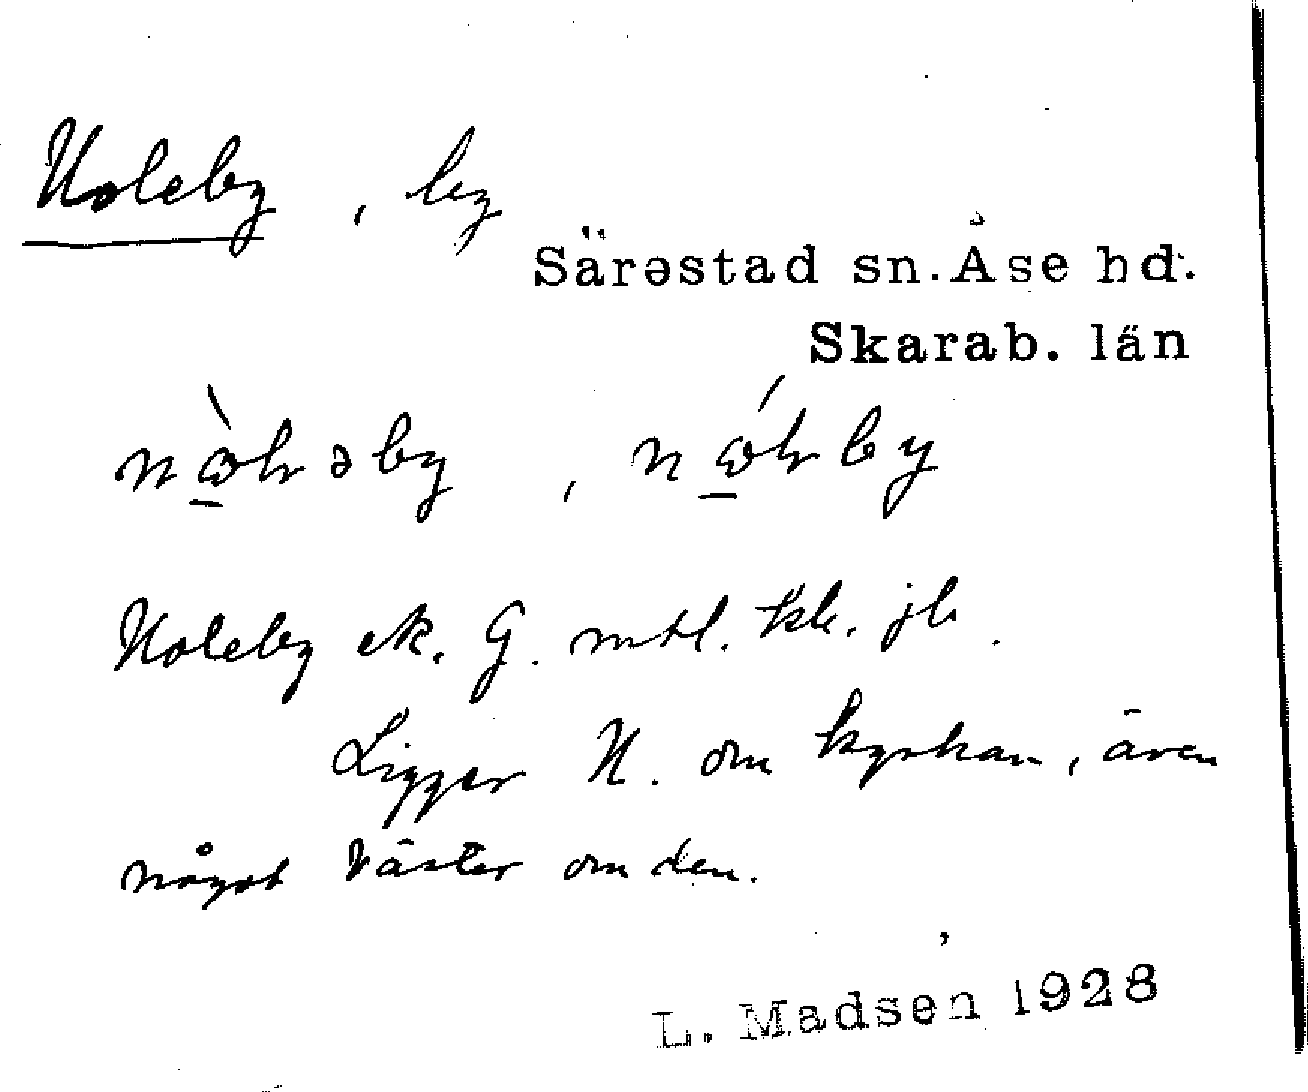 Noleby, by
Särestad sn. Åse hd.
Skarab. län
Noleby ek. G. mtl. kk. jb.
Ligger N. om kyrkan, även
något väster om den.
L. Madsen 1928